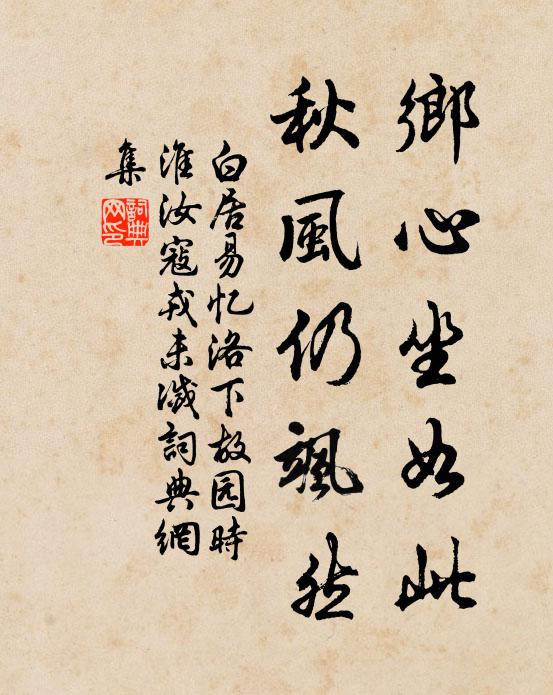 鄉心坐如此
秋風仍颯然
白居易忆洛下故园時
淮汝寇戎未滅詞典網
集
詞典網印